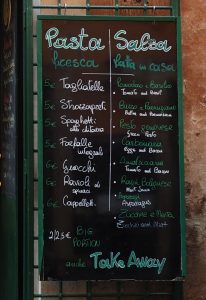 Pasta Salsa
fresca fatta in casa
5€ Tagliatelle
5€ Strozzapreti
5€ Spaghetti alla chitarra
5€ Farfalle integrali
6€ Gnocchi
6€ Ravioli di spinaci
6€ Cappelletti
Pomodoro e Basilico
Tomato and Basil
Burro e Parmigiano
Butter and Parmesan
Pesto genovese
Green Pesto
Carbonara
Eggs and Bacon
Amatriciana
Tomato and Bacon
Ragù Bolognese
Meat Sauce
Asparagi
Asparagus
Zucchine e Menta
Zucchini and Mint
BIG PORTION
anche Take Away